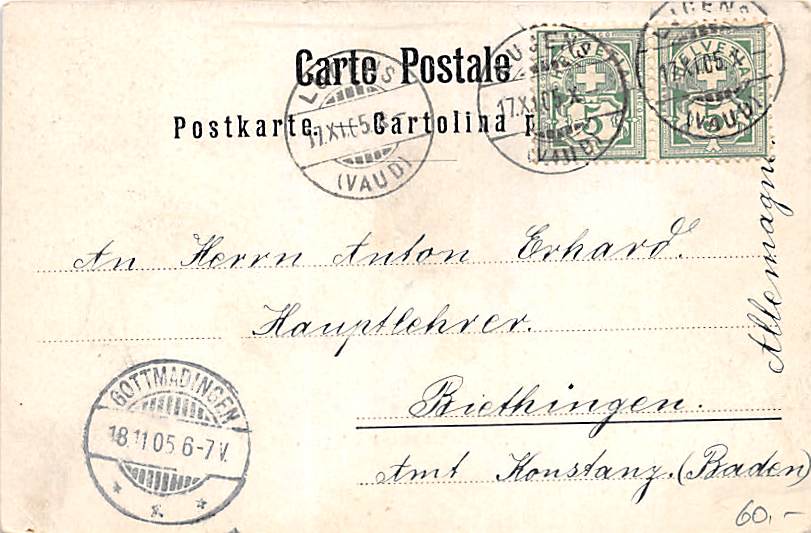 Carte Postale
Postkarte. Cartolina
LUCENS
17.XI.05.
(VAUD)
LUCENS
17.XI.05.X
(VAUD)
LUCENS
17.XI.05.
(VAUD)
HELVETIA
5
HELVETIA
5
An Herrn Anton Erhard.
Hauptlehrer.
Biethingen.
Amt Konstanz. (Baden)
Allemagne.
GOTTMADINGEN
18.11.05.6-7V.
60.-